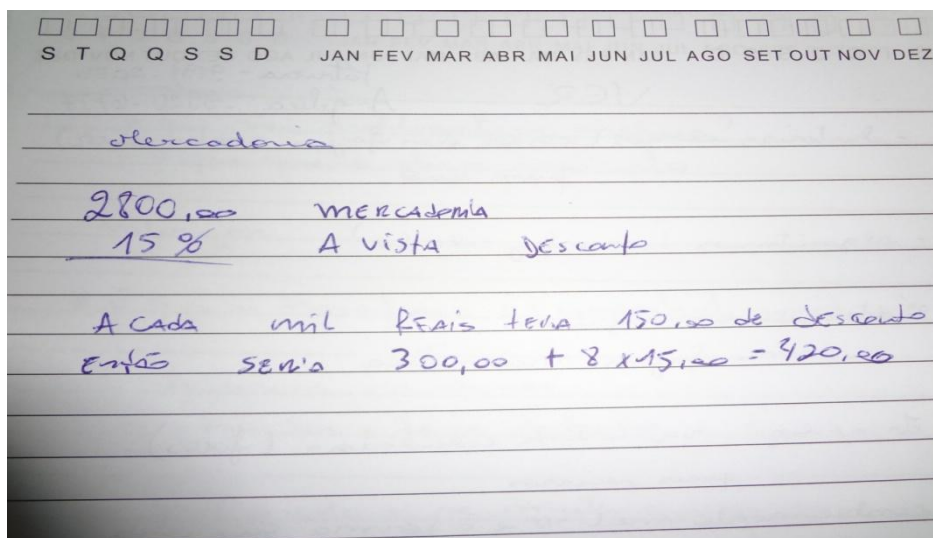 S T Q Q S S D JAN FEV MAR ABR MAI JUN JUL AGO SET OUT NOV DEZ
Mercadoria
2800,00 MERCADORIA
15 % A vistA Desconto
A CAdA mil REAis teria 150,00 de desconto
Então seria 300,00 + 8 x 15,00 = 420,00